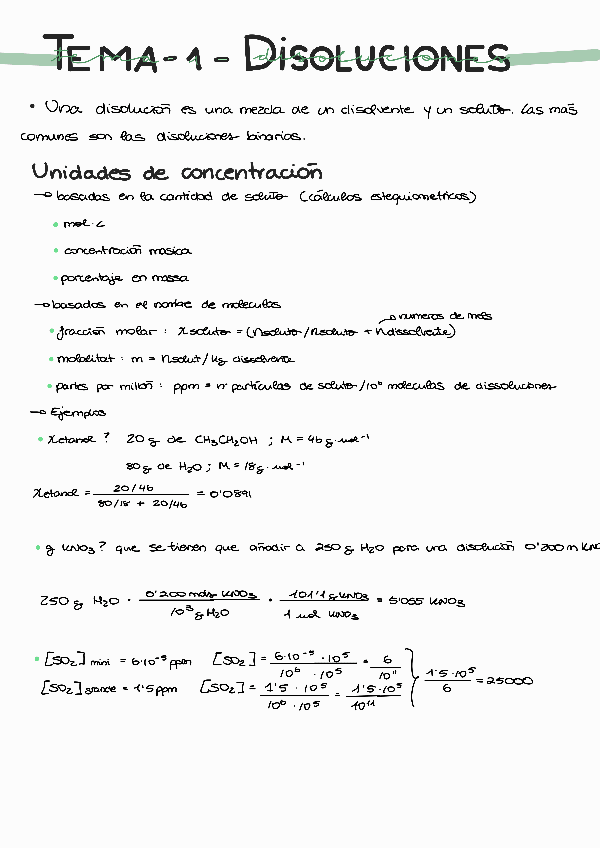 TEMA - 1 - DISOLUCIONES
• Una disolución es una mezcla de un disolvente y un soluto. Las más
comunes son las disoluciones binarias.
Unidades de concentración
→ basadas en la cantidad de soluto (cálculos estequiometricos)
• mol·L
• concentración masica
• porcentaje en massa
→ basados en el nombre de moleculas
→ numeros de mols
• fracción molar : Xsoluto = (nsoluto/nsoluto + ndissolvente)
• molalitat : m = nsolut/kg dissolvente
• partes por millón : ppm = nº partículas de soluto/10⁶ moleculas de dissoluciones
→ Ejemplos
• Xetanol ? 20 g de CH₃CH₂OH ; M = 46 g·mol⁻¹
80 g de H₂O ; M = 18 g·mol⁻¹
Xetanol = 20/46 / 80/18 + 20/46 = 0'0891
• g KNO₃ ? que se tienen que añadir a 250 g H₂O para una disolución 0'200 m KNO
250 g H₂O · 0'200 mols KNO₃ / 10³ g H₂O · 101'1 g KNO₃ / 1 mol KNO₃ = 5'055 KNO₃
• [SO₂] mini = 6·10⁻⁵ ppm [SO₂] = 6·10⁻⁵ · 10⁵ / 10⁶ · 10⁵ = 6 / 10¹¹
[SO₂] grande = 1'5 ppm [SO₂] = 1'5 · 10⁵ / 10⁶ · 10⁵ = 1'5·10⁵ / 10¹¹ } 1'5·10⁵ / 6 = 25000